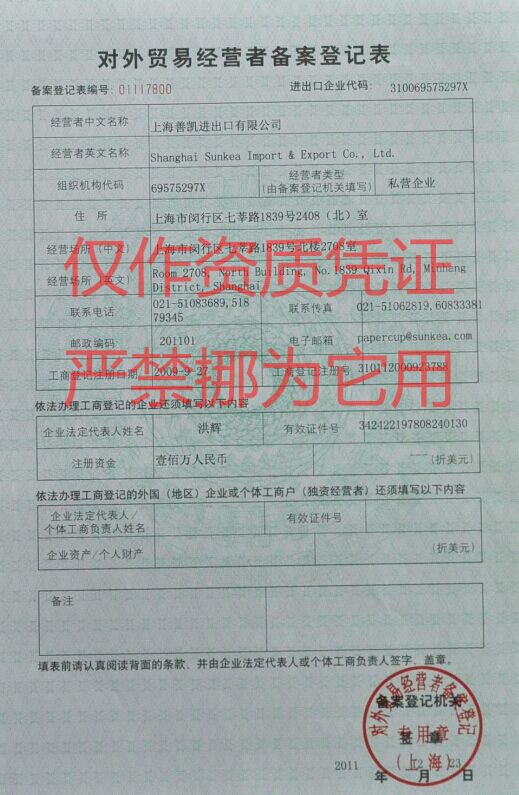 对外贸易经营者备案登记表
备案登记表编号: 01117800 进出口企业代码: 310069575297X
经营者中文名称 上海善凯进出口有限公司
经营者英文名称 Shanghai Sunkea Import & Export Co., Ltd.
组织机构代码 69575297X 经营者类型 (由备案登记机关填写) 私营企业
住 所 上海市闵行区七莘路1839号2408（北）室
经营场所（中文） 上海市闵行区七莘路1839号北楼2708室
仅作资质凭证
经营场所（英文） Room 2708, North Building, No.1839 Qixin Rd, Minhang District, Shanghai
联系电话 021-51083689,51879345 联系传真 021-51062819,60833381
邮政编码 201101 电子邮箱 papercup@sunkea.com
严禁挪为它用
工商登记注册日期 2009-9-27 工商登记注册号 310112000923788
依法办理工商登记的企业还须填写以下内容
企业法定代表人姓名 洪辉 有效证件号 342422197808240130
注册资金 壹佰万人民币 (折美元)
依法办理工商登记的外国（地区）企业或个体工商户（独资经营者）还须填写以下内容
企业法定代表人/
个体工商负责人姓名 有效证件号
企业资产/个人财产 (折美元)
备注
填表前请认真阅读背面的条款、并由企业法定代表人或个体工商负责人签字、盖章。
对外贸易经营者备案登记
备案登记机关
专用章
签 章
(上海)
2011 12 23
年 月 日